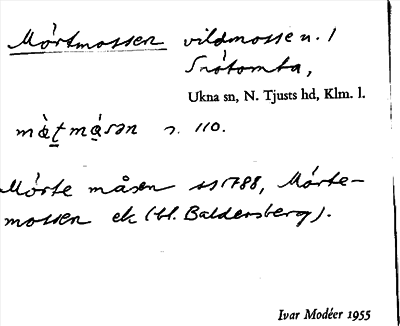 Mörtmossen vildmosse u. /
Snötomta,
Ukna sn, N. Tjusts hd, Klm. l.
s. 110.
Mörte måsen ss 1788, Mörte-
mossen ek (bl. Baldersberg).
Ivar Modéer 1955